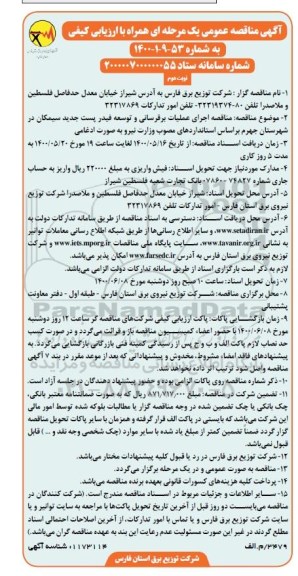 آگهی مناقصه عمومی یک مرحله ای همراه با ارزیابی کیفی
به شماره ۵۳-۹-۱-۱۴۰۰
شماره سامانه ستاد ۲۰۰۰۰۰۷۰۰۰۰۰۰۰۵۵
نوبت دوم
۱-نام مناقصه گزار :شرکت توزیع برق فارس به آدرس شیراز خیابان معدل حدفاصل فلسطین
و ملاصدرا تلفن ۸۰-۳۲۳۱۹۳۷۴- تلفن امور تدارکات ۳۲۳۱۷۸۶۹
۲- موضوع مناقصه: مناقصه اجرای عملیات برقرسانی و توسعه فیدر پست جدید سیمکان در
شهرستان جهرم براساس استانداردهای مصوب وزارت نیرو به صورت ادغامی
۳- زمان دریافت اسناد مناقصه:از تاریخ ۱۴۰۰/۰۵/۱۶ لغایت ساعت ۱۹ مورخ ۱۴۰۰/۰۵/۲۰ به
مدت ۵ روز کاری
۴-مدارک موردنیاز جهت تحویل اسناد: فیش واریزی به مبلغ ۲۲۰۰۰۰ ریال واریز به حساب
جاری شماره بانک تجارت شعبه فلسطین شیراز
۵- آدرس محل تحویل اسناد: شیراز خیابان معدل حدفاصل فلسطین و ملاصدرا شرکت توزیع
نیروی برق استان فارس - امور تدارکات تلفن ۳۲۳۱۷۸۶۹
۶-آدرس محل دریافت اسناد: دسترسی به اسناد مناقصه از طریق سامانه تدارکات دولت به
آدرس www.setadiran.ir، و سایر اطلاع رسانی‌ها از طریق شبکه اطلاع رسانی معاملات توانیر
به نشانی www.tavanir.org.ir، سایت پایگاه ملی مناقصات www.iets.mporg.ir و شرکت
توزیع نیروی برق استان فارس به آدرس www.farsedc.ir امکان پذیر می‌باشد.
لازم به ذکر است بارگزاری اسناد از طریق سامانه تدارکات دولت الزامی می‌باشد.
۷- زمان تحویل اسناد: ساعت ۱۰ صبح روز دوشنبه مورخ ۱۴۰۰/۰۶/۰۸
۸- محل برگزاری مناقصه: شرکت توزیع نیروی برق استان فارس - طبقه اول - دفتر معاونت
پشتیبانی
۹- زمان بازگشایی پاکات: پاکت ارزیابی کیفی شرکت‌های مناقصه گر ساعت ۱۲ روز دوشنبه
مورخ ۱۴۰۰/۰۶/۰۸ با حضور اعضاء کمیسیون مناقصه باز و قرائت می‌گردد و در صورت کسب
حد نصاب لازم پاکت الف و ب و ج پس از رسیدگی کمیته فنی بازرگانی بازگشایی می‌گردد. به
پیشنهادهای فاقد امضاء مشروط، مخدوش و پیشنهاداتی که بعد از موعد مقرر در بند ۷ آگهی
مناقصه واصل شود ترتیب اثر داده نخواهد شد.
۱۰- ذکر شماره مناقصه روی پاکات الزامی بوده و حضور پیشنهاد دهندگان در جلسه آزاد است.
۱۱- تضمین شرکت در مناقصه: مبلغ ۸۷۱,۷۱۷,۰۰۰ ریال که به صورت ضمانتنامه معتبر بانکی،
چک بانکی یا چک تضمین شده در وجه مناقصه گزار یا مطالبات بلوکه شده توسط امور مالی
این شرکت می‌باشد که بایستی در پاکت الف قرار گرفته و همزمان با سایر پاکات تحویل مناقصه
گزار گردد ضمناً تضمین کمتر از مبلغ یاد شده یا سایر موارد (چک شخصی وجه نقد و ...) قابل
قبول نمی‌باشد.
۱۲-شرکت توزیع برق فارس در رد یا قبول کلیه پیشنهادات مختار می‌باشد.
۱۳- مناقصه به صورت عمومی و در یک مرحله برگزار می‌گردد.
۱۴- پرداخت کلیه هزینه‌های کسورات قانونی بعهده برنده مناقصه می‌باشد.
۱۵- سایر اطلاعات و جزئیات مربوط در اسناد مناقصه مندرج است. (شرکت کنندگان در
مناقصه می‌بایست دو روز قبل از آخرین تاریخ تحویل پاکت‌ها با مراجعه به سایت توانیر و یا
سایت شرکت توزیع برق فارس و یا تماس با امور تدارکات، از آخرین اصلاحات احتمالی اسناد
مطلع گردند در غیر این صورت مسئولیت عدم رعایت این بند به عهده مناقصه گران می‌باشد.)
۳۴۷۹/م.الف
۰۱۱۷۳۱۱۴ شناسه آگهی
شرکت توزیع برق استان فارس